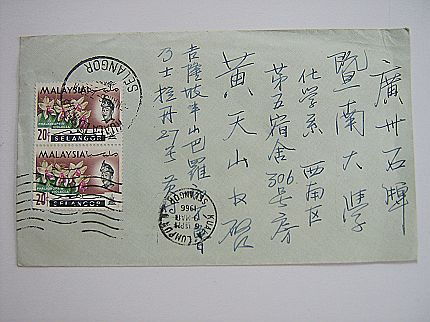 廣州石牌
暨南大學
化学系 西南区
第五宿舍306号房
黄天山 收啓
吉隆坡半山巴羅
乃士拉丹27号 黄
MALAYSIA
20¢
SELANGOR
MALAYSIA
20¢
SELANGOR
SELANGOR
KUALA LUMPUR
SELANGOR
1966